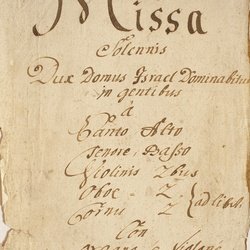 Missa
Solennis
Dux Domus Israel Dominabitur
in gentibus
à
Canto Alto
Tenore, Basso
Violinis 2bus
Oboe - 2
Cornu 2 ad lib:
Con
Organo e Violone